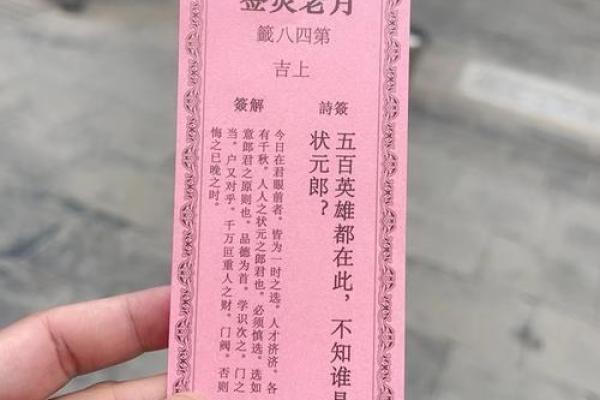 月老灵签
第四八籤
上吉
簽詩
五百英雄都在此，不知谁是
状元郎？
解簽
今日在君眼前者。皆为一时之选。人才济济。各
有千秋。人人之状元之郎君也。必须慎选。选如
意郎君之原则也。品德为首。学识次之。门之
当。户又对乎。千万叵重人之财。门阀。否则
悔之已晚之时。